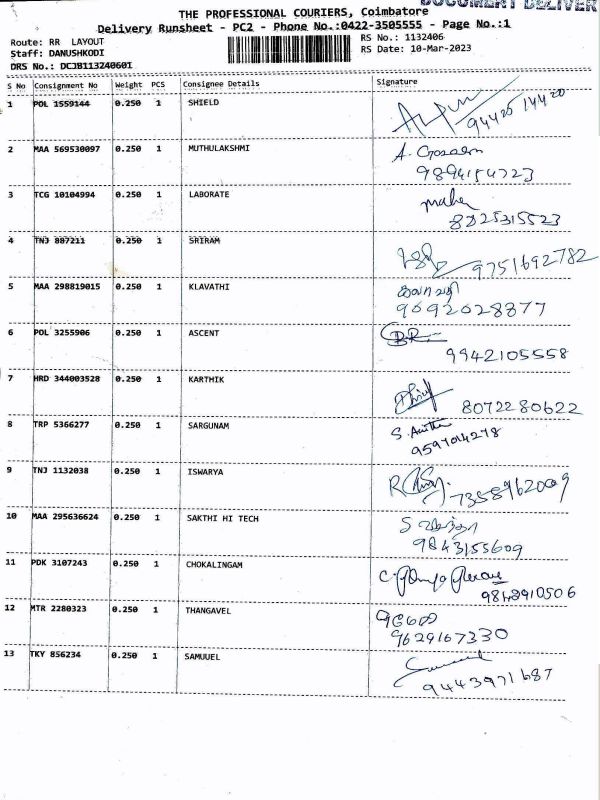 DOCUMENT DELIVER
THE PROFESSIONAL COURIERS, Coimbatore
Delivery Runsheet - PC2 - Phone No.:0422-3505555 - Page No.:1
Route: RR LAYOUT
RS No.: 1132406
Staff: DANUSHKODI
RS Date: 10-Mar-2023
DRS No.: DCJB113240601
S No Consignment No Weight PCS Consignee Details Signature
1 POL 1559144 0.250 1 SHIELD
94425 14420
2 MAA 569530097 0.250 1 MUTHULAKSHMI A.
9894154723
3 TCG 10104994 0.250 1 LABORATE
8825315523
4 TNJ 887211 0.250 1 SRIRAM
9751692782
5 MAA 298819015 0.250 1 KLAVATHI கலாவதி
9092028877
6 POL 3255906 0.250 1 ASCENT
9942105558
7 HRD 344003528 0.250 1 KARTHIK
8072280622
8 TRP 5366277 0.250 1 SARGUNAM S.
9597014278
9 TNJ 1132038 0.250 1 ISWARYA
7358962009
10 MAA 295636624 0.250 1 SAKTHI HI TECH
9843155609
11 PDK 3107243 0.250 1 CHOKALINGAM
9842910506
12 MTR 2280323 0.250 1 THANGAVEL
9629167330
13 TKY 856234 0.250 1 SAMUUEL
9443971687